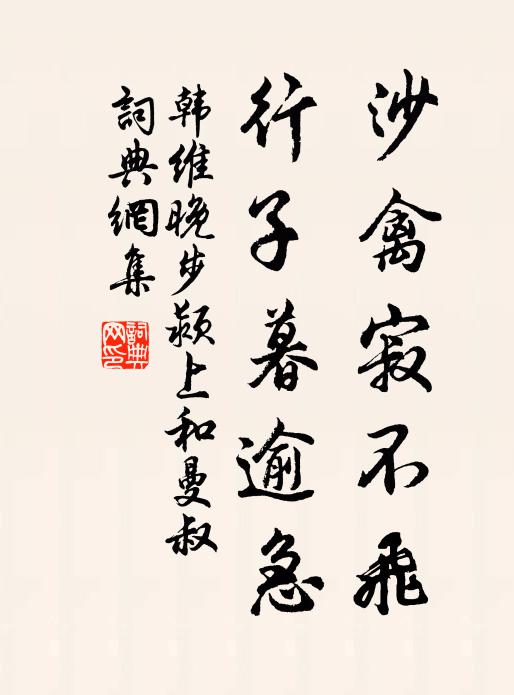 沙禽寂不飛
行子暮逾急
韩維晚步颍上和曼叔
詞典網集
詞典網印